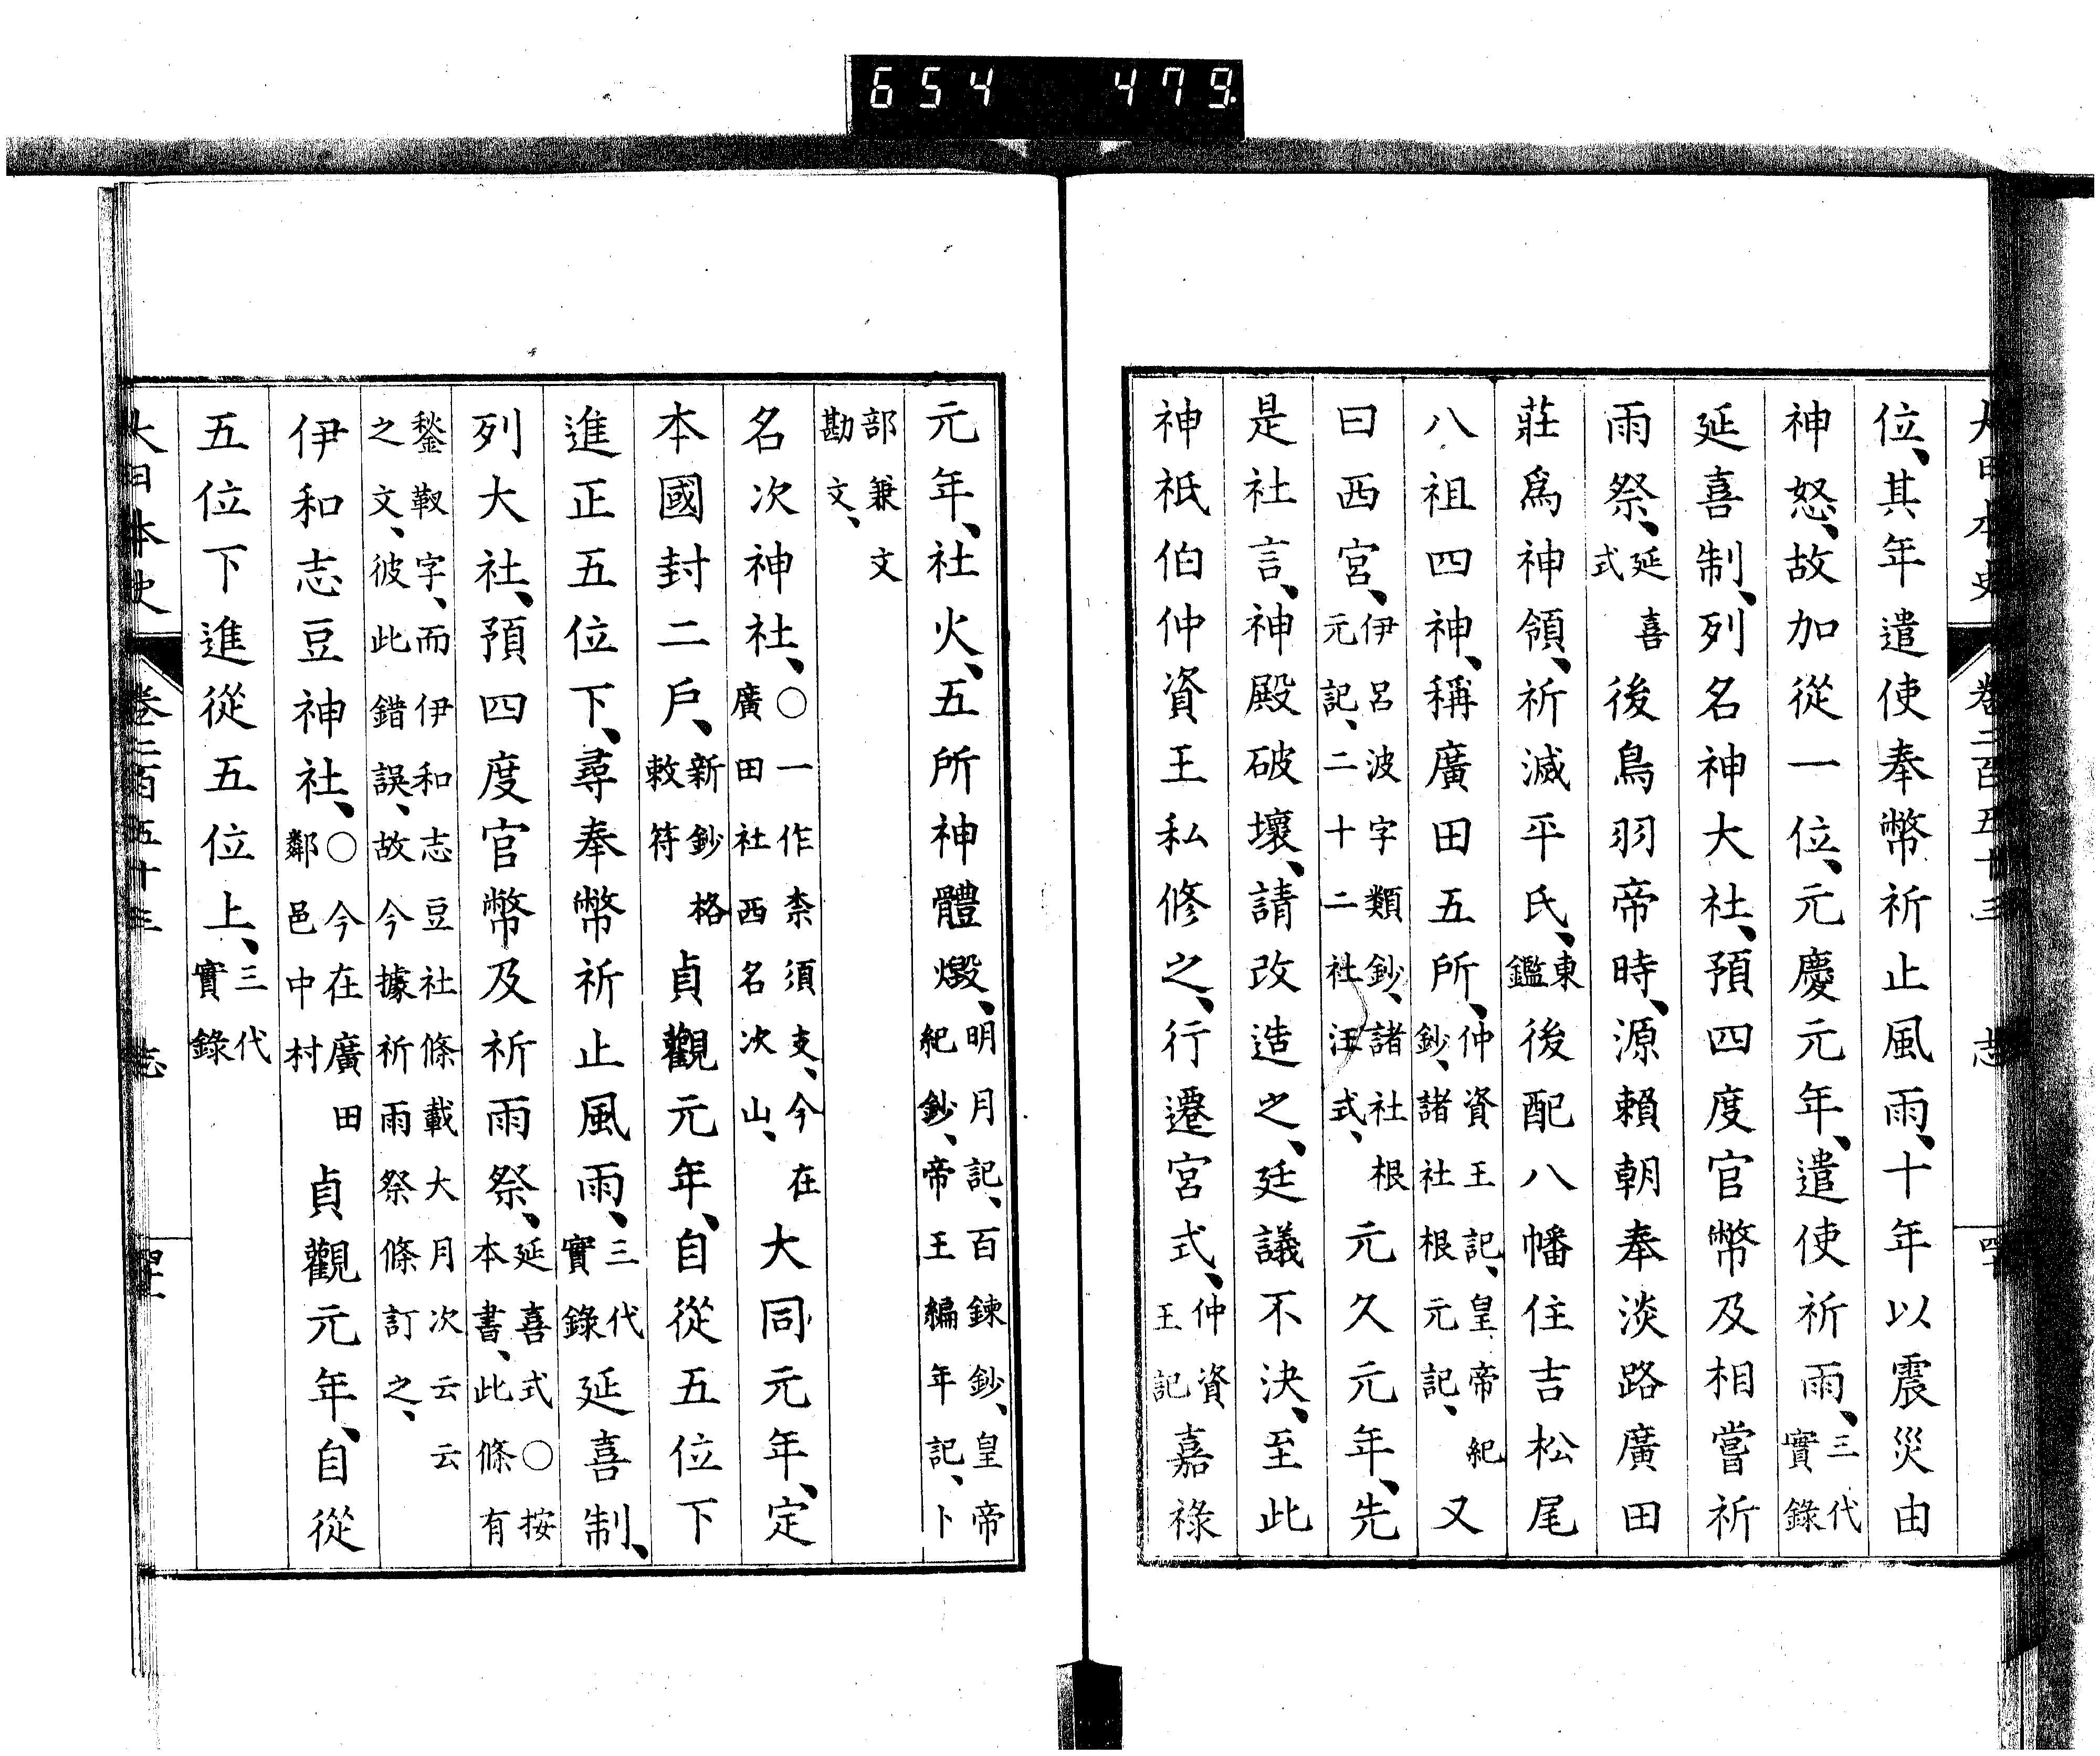 654 479.
大日本史 卷二百五十三 志
位、其年遣使奉幣祈止風雨、十年以震災由
神怒、故加從一位、元慶元年、遣使祈雨、三代實錄
延喜制、列名神大社、預四度官幣及相嘗祈
雨祭、延喜式後鳥羽帝時、源賴朝奉淡路廣田
莊爲神領、祈滅平氏、東鑑後配八幡住吉松尾
八祖四神、稱廣田五所、仲資王記、皇帝紀鈔、諸社根元記、又
曰西宮、伊呂波字類鈔、諸社根元記、二十二社注式、元久元年、先
是社言、神殿破壞、請改造之、廷議不決、至此
神祇伯仲資王私修之、行遷宮式、仲資王記嘉祿
元年、社火、五所神體燬、明月記、百鍊鈔、皇帝紀鈔、帝王編年記、卜
部兼文勘文、
名次神社、○一作柰須支、今在廣田社西名次山、大同元年、定
本國封二戶、新鈔格敕符貞觀元年、自從五位下
進正五位下、尋奉幣祈止風雨、三代實錄延喜制、
列大社、預四度官幣及祈雨祭、延喜式○按本書、此條有
鍫靫字、而伊和志豆社條載大月次云云之文、彼此錯誤、故今據祈雨祭條訂之、
伊和志豆神社、○今在廣田鄰邑中村貞觀元年、自從
五位下進從五位上、三代實錄
大日本史 卷二百五十三 志